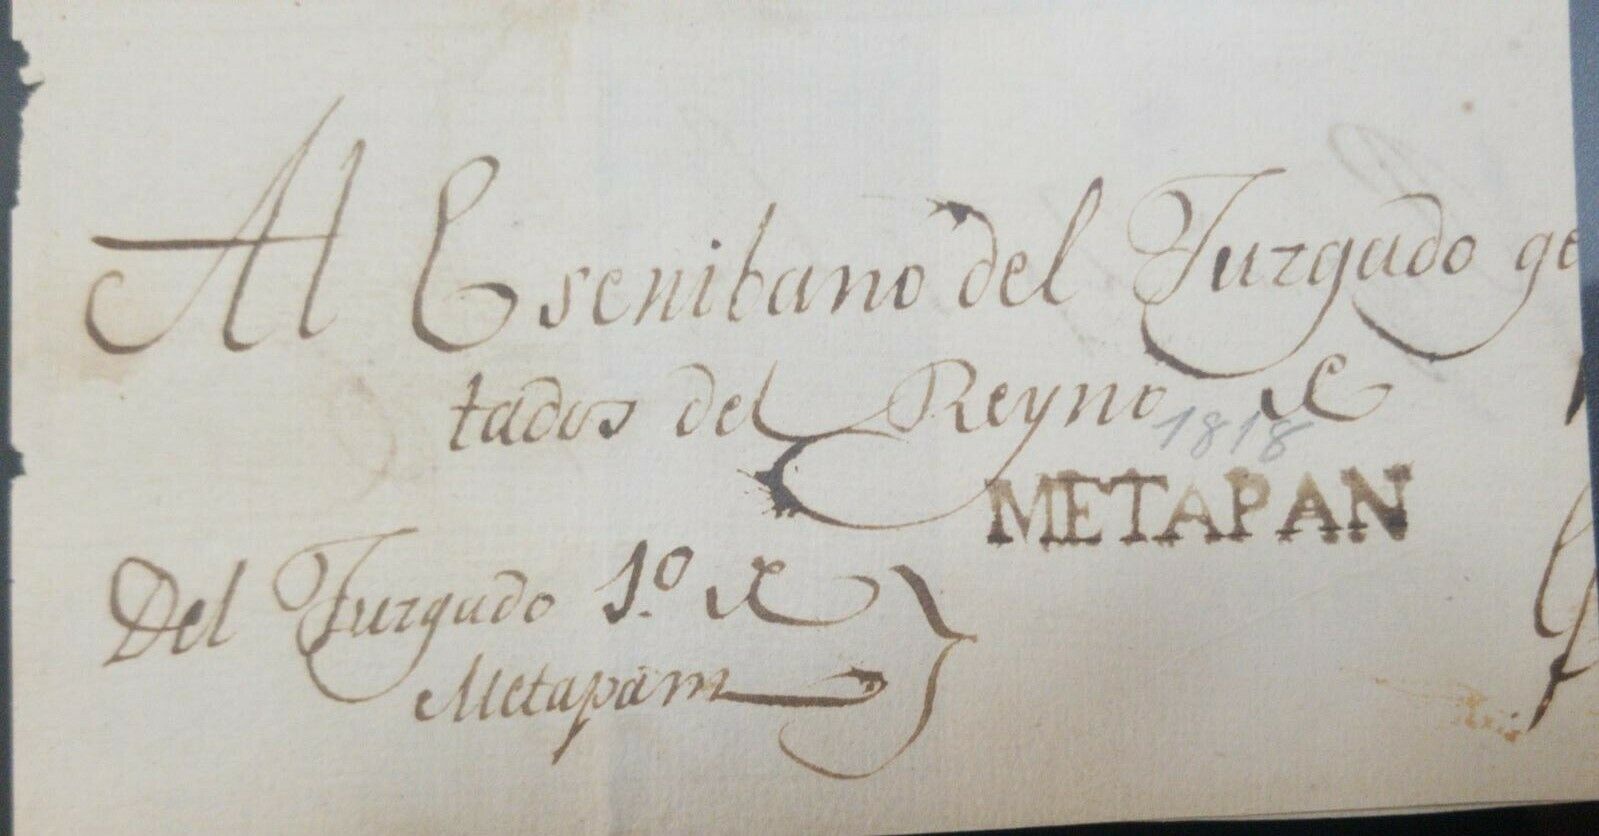 Al Escribano del Jurgado ge
tados del Reyno &
1818
METAPAN
Del Jurgado 1.º &
Metapam